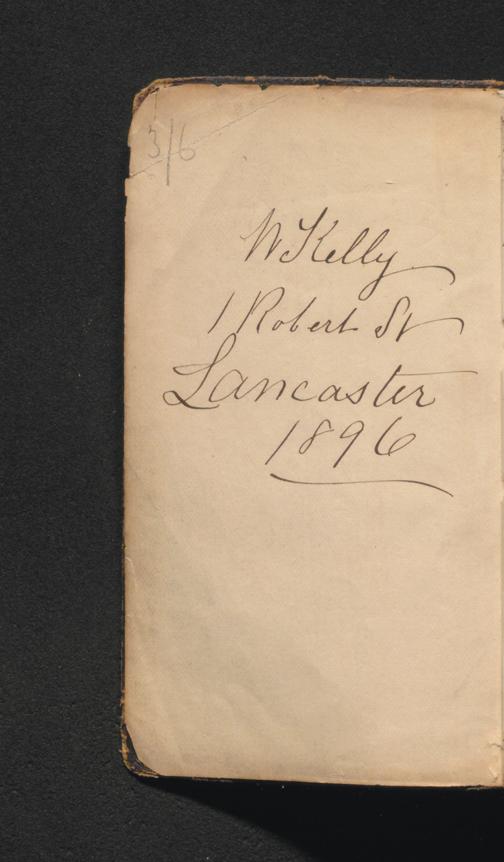 3/6
W Kelly
1 Robert St
Lancaster
1896